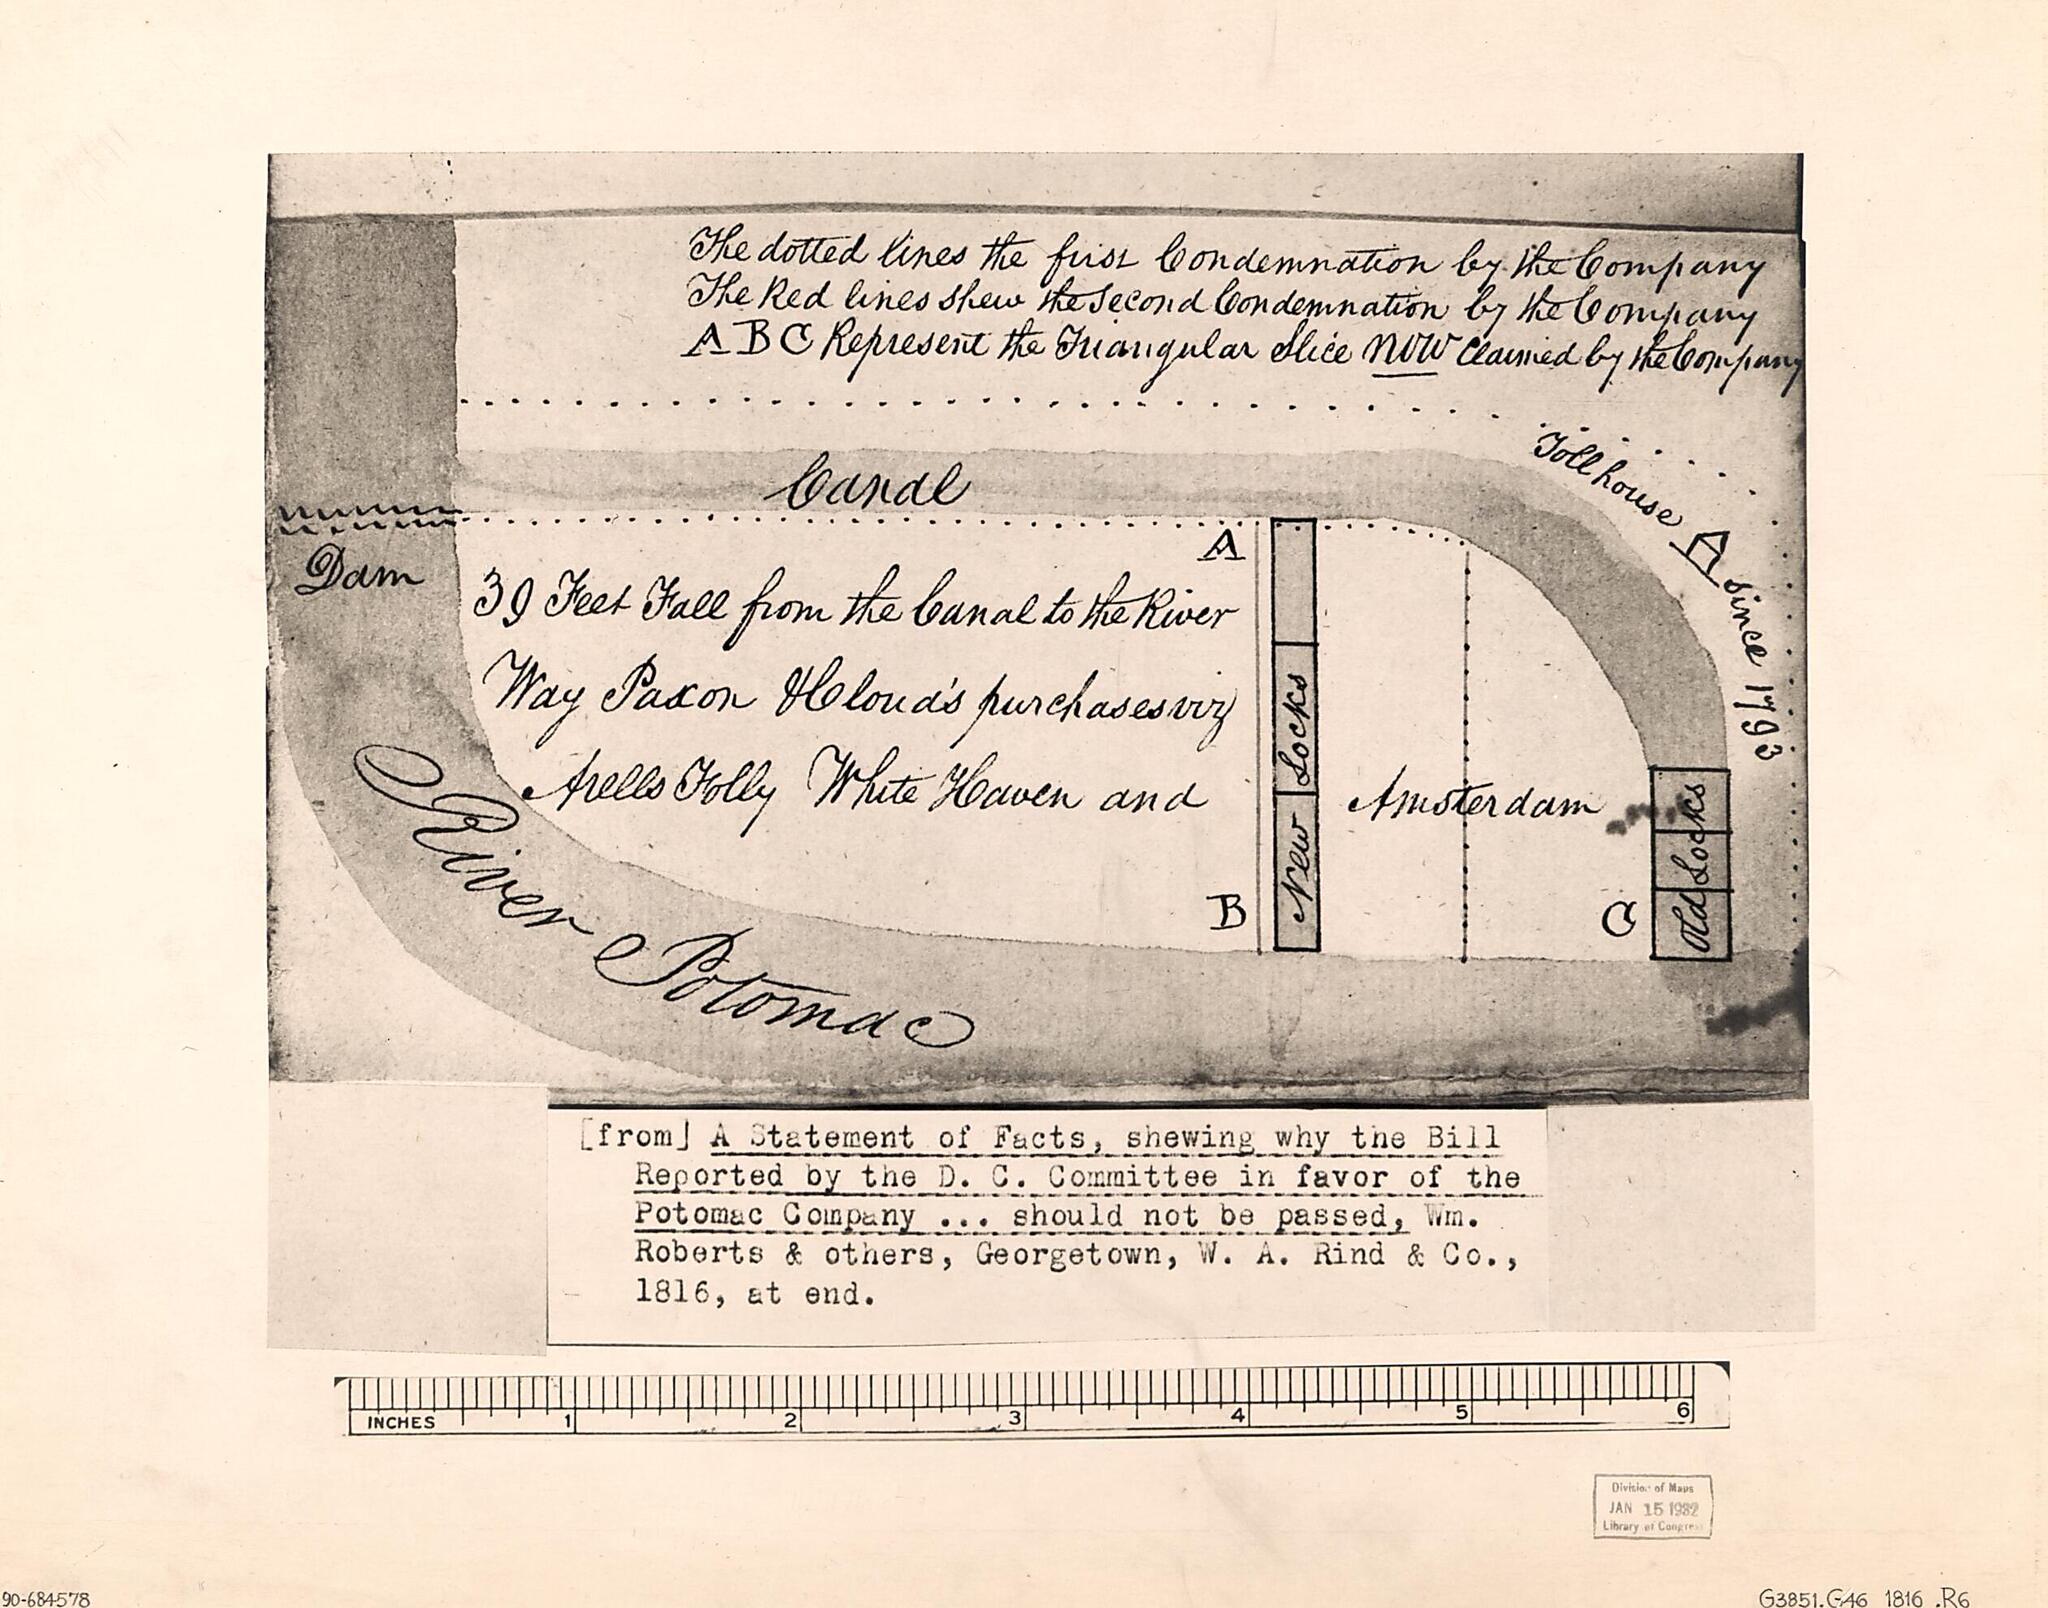 The dotted lines the first Condemnation by the Company
The Red lines shew the second Condemnation by the Company
A B C Represent the Triangular Slice NOW Claimed by the Company
Tollhouse A since 1793
Canal
Dam
A
39 Feet Fall from the Canal to the River
Way Paxon & Cloud's purchases viz
Arells Folly White Haven and
Amsterdam
New Locks
Old Locks
B
C
River Potomac
[from] A Statement of Facts, shewing why the Bill
Reported by the D. C. Committee in favor of the
Potomac Company ... should not be passed, Wm.
Roberts & others, Georgetown, W. A. Rind & Co.,
1816, at end.
INCHES 1 2 3 4 5 6
Division of Maps
JAN 15 1932
Library of Congress
90-684578
G3851.G46 1816 .R6